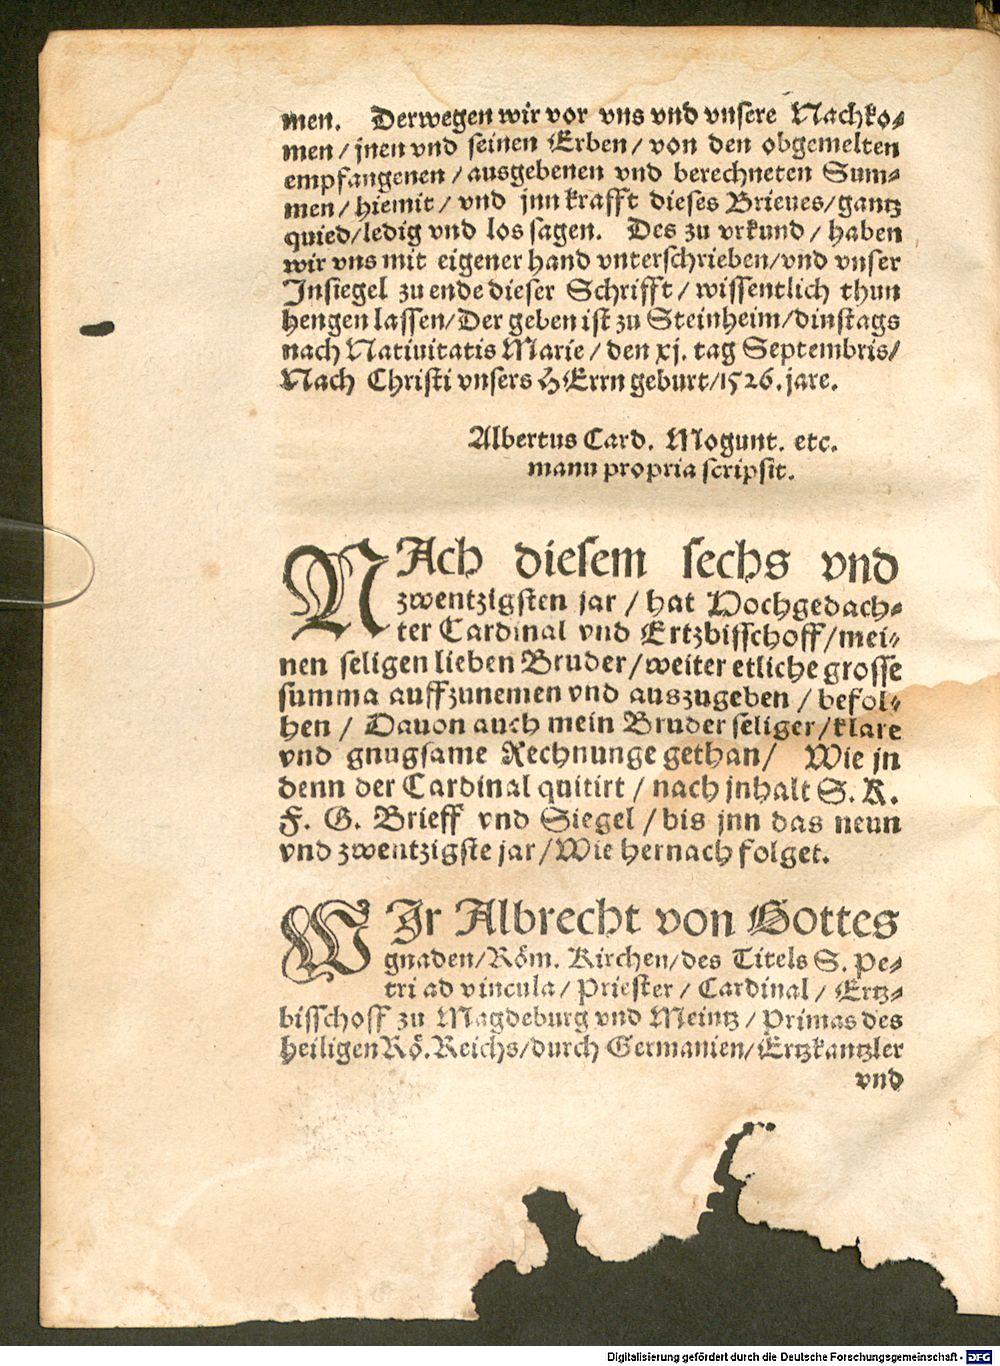 men. Derwegen wir vor vns vnd vnsere Nachko-
men / jnen vnd seinen Erben / von den obgemelten
empfangenen / ausgebenen vnd berechneten Sum-
men / hiemit / vnd jnn krafft dieses Brieues / gantz
quied / ledig vnd los sagen. Des zu vrkund / haben
wir vns mit eigener hand vnterschrieben / vnd vnser
Insiegel zu ende dieser Schrifft / wissentlich thun
hengen lassen / Der geben ist zu Steinheim / dinstags
nach Natiuitatis Marie / den xj. tag Septembris /
Nach Christi vnsers HErrn geburt / 1526. jare.
Albertus Card. Mogunt. etc.
manu propria scripsit.
NAch diesem sechs vnd
zwentzigsten jar / hat Hochgedach-
ter Cardinal vnd Ertzbisschoff / mei-
nen seligen lieben Bruder / weiter etliche grosse
summa auffzunemen vnd auszugeben / befol-
hen / Dauon auch mein Bruder seliger / klare
vnd gnugsame Rechnunge gethan / Wie jn
denn der Cardinal quitirt / nach jnhalt S. K.
F. G. Brieff vnd Siegel / bis jnn das neun
vnd zwentzigste jar / Wie hernach folget.
WIr Albrecht von Gottes
gnaden / Röm. Kirchen / des Titels S. Pe-
tri ad vincula / Priester / Cardinal / Ertz-
bisschoff zu Magdeburg vnd Meintz / Primas des
heiligen Rö. Reichs / durch Germanien / Ertzkantzler
vnd
Digitalisierung gefördert durch die Deutsche Forschungsgemeinschaft - DFG